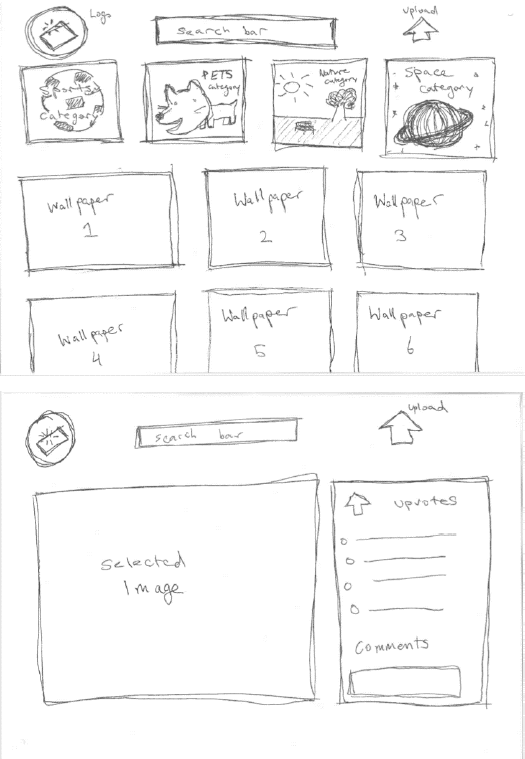 Logo
search bar
upload
Sports
Category
PETS
category
Nature
category
Space
Category
Wallpaper
1
Wallpaper
2
Wallpaper
3
Wallpaper
4
Wallpaper
5
Wallpaper
6
search bar
upload
Selected
Image
upvotes
Comments